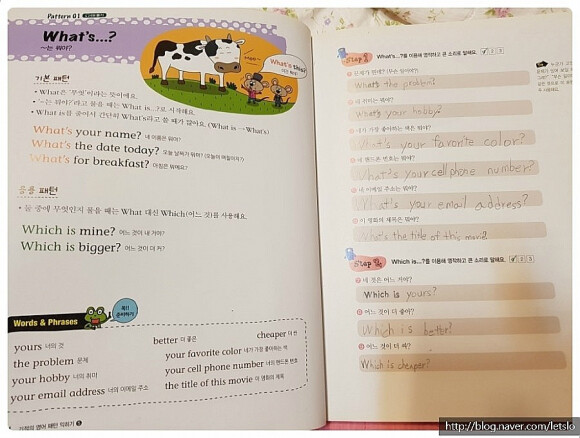 Pattern 01
What's...?
~는 뭐야?
What's this?
이건 뭐야?
기본 패턴
• What은 '무엇'이라는 뜻이에요.
• '~는 뭐야?'라고 물을 때는 What is...?로 시작해요.
• What is를 줄여서 간단히 What's라고 쓸 때가 많아요. (What is → What's)
What's your name? 네 이름은 뭐야?
What's the date today? 오늘 날짜가 뭐야? (오늘이 며칠이지?)
What's for breakfast? 아침은 뭐예요?
응용 패턴
• 둘 중에 무엇인지 물을 때는 What 대신 Which(어느 것)를 사용해요.
Which is mine? 어느 것이 내 거야?
Which is bigger? 어느 것이 더 커?
Words & Phrases
yours 너의 것
the problem 문제
your hobby 너의 취미
your email address 너의 이메일 주소
better 더 좋은
cheaper 더 싼
your favorite color 네가 가장 좋아하는 색
your cell phone number 너의 핸드폰 번호
the title of this movie 이 영화의 제목
What's...?를 이용해 영작하고 큰 소리로 말해요.
문제가 뭐야? (무슨 일이야?)
What's the problem?
네 취미는 뭐야?
What's your hobby?
네가 가장 좋아하는 색은 뭐야?
What's your favorite color?
네 핸드폰 번호는 뭐야?
What's your cell phone number?
네 이메일 주소는 뭐야?
What's your email address?
이 영화의 제목은 뭐야?
What's the title of this movie?
Which is...?를 이용해 영작하고 큰 소리로 말해요.
네 것은 어느 거야?
Which is yours?
어느 것이 더 좋아?
Which is better?
어느 것이 더 싸?
Which is cheaper?
http://blog.naver.com/letslo